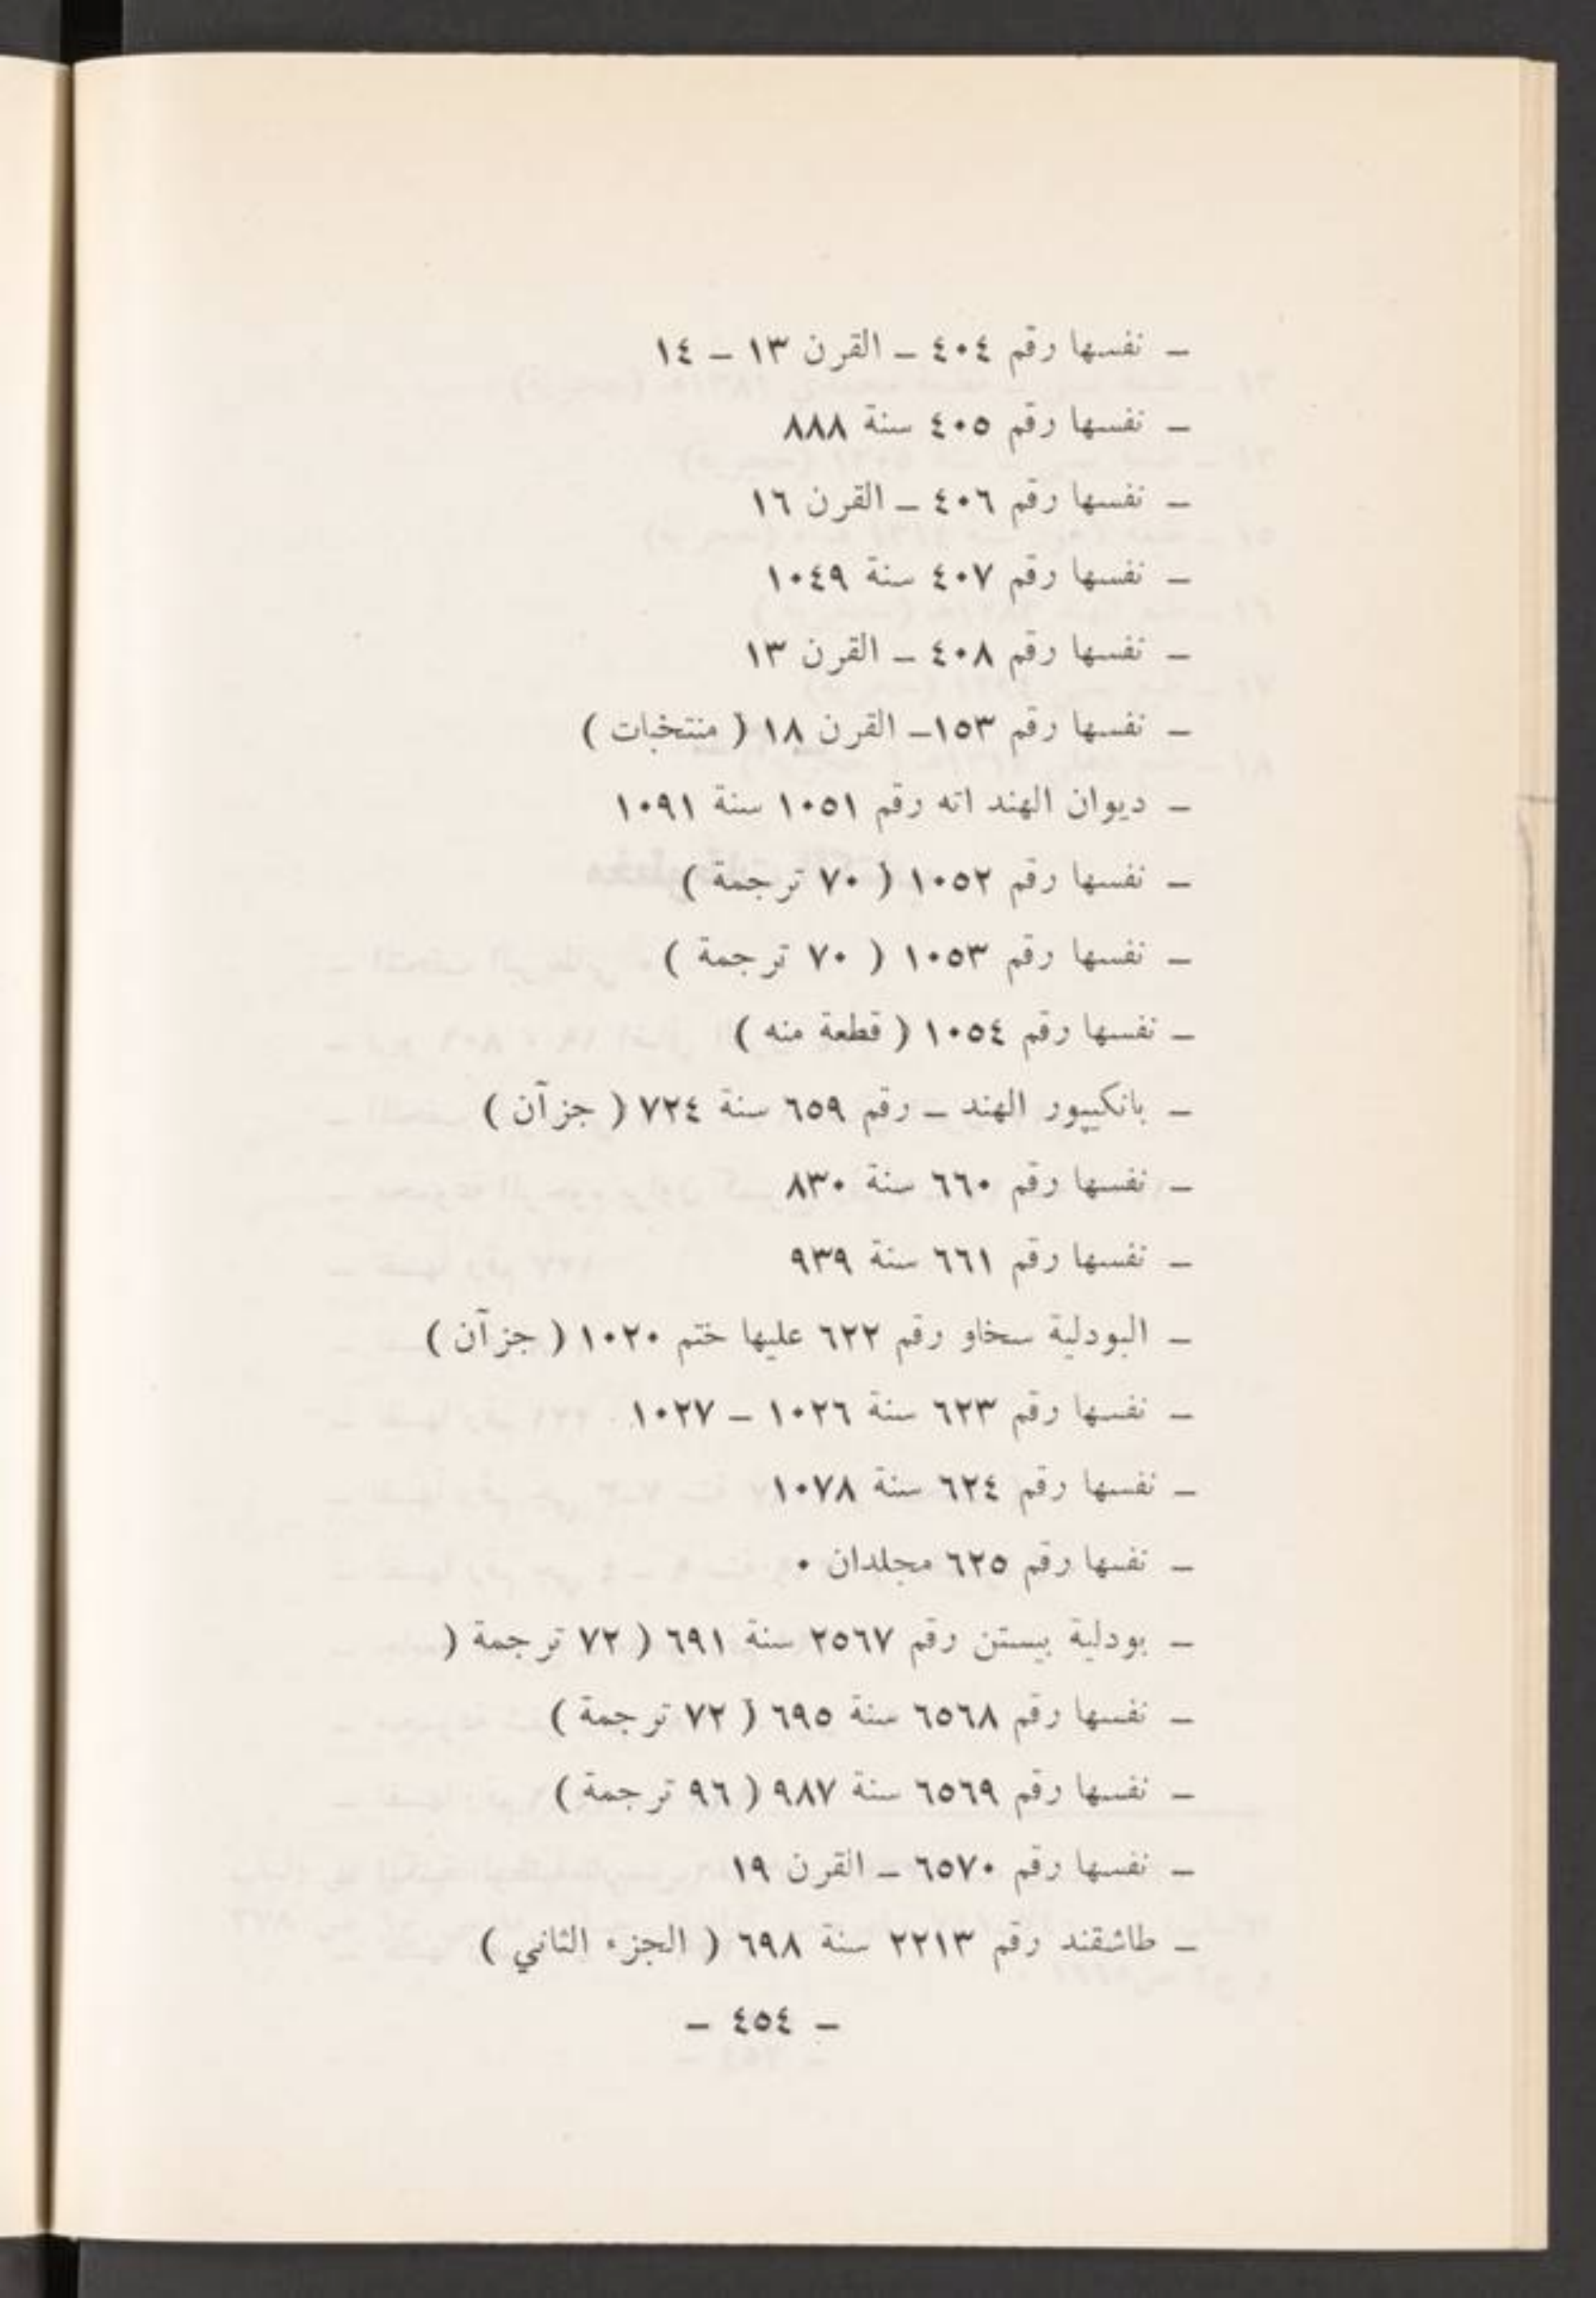 ـ نفسها رقم ٤٠٤ ـ القرن ١٣ ـ ١٤
ـ نفسها رقم ٤٠٥ سنة ٨٨٨
ـ نفسها رقم ٤٠٦ ـ القرن ١٦
ـ نفسها رقم ٤٠٧ سنة ١٠٤٩
ـ نفسها رقم ٤٠٨ ـ القرن ١٣
ـ نفسها رقم ١٥٣ـ القرن ١٨ ( منتخبات )
ـ ديوان الهند اته رقم ١٠٥١ سنة ١٠٩١
ـ نفسها رقم ١٠٥٢ ( ٧٠ ترجمة )
ـ نفسها رقم ١٠٥٣ ( ٧٠ ترجمة )
ـ نفسها رقم ١٠٥٤ ( قطعة منه )
ـ بانكيپور الهند ـ رقم ٦٥٩ سنة ٧٢٤ ( جزآن )
ـ نفسها رقم ٦٦٠ سنة ٨٣٠
ـ نفسها رقم ٦٦١ سنة ٩٣٩
ـ البودلية سخاو رقم ٦٢٢ عليها ختم ١٠٢٠ ( جزآن )
ـ نفسها رقم ٦٢٣ سنة ١٠٢٦ ـ ١٠٢٧
ـ نفسها رقم ٦٢٤ سنة ١٠٧٨
ـ نفسها رقم ٦٢٥ مجلدان ٠
ـ بودلية بيستن رقم ٢٥٦٧ سنة ٦٩١ ( ٧٢ ترجمة (
ـ نفسها رقم ٦٥٦٨ سنة ٦٩٥ ( ٧٢ ترجمة )
ـ نفسها رقم ٦٥٦٩ سنة ٩٨٧ ( ٩٦ ترجمة )
ـ نفسها رقم ٦٥٧٠ ـ القرن ١٩
ـ طاشقند رقم ٢٢١٣ سنة ٦٩٨ ( الجزء الثاني )
ـ ٤٥٤ ـ